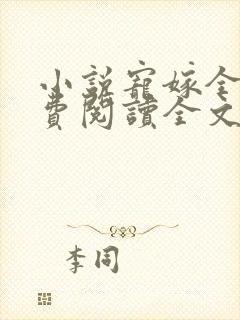 小說寵嫁全
費閱讀全文
李同